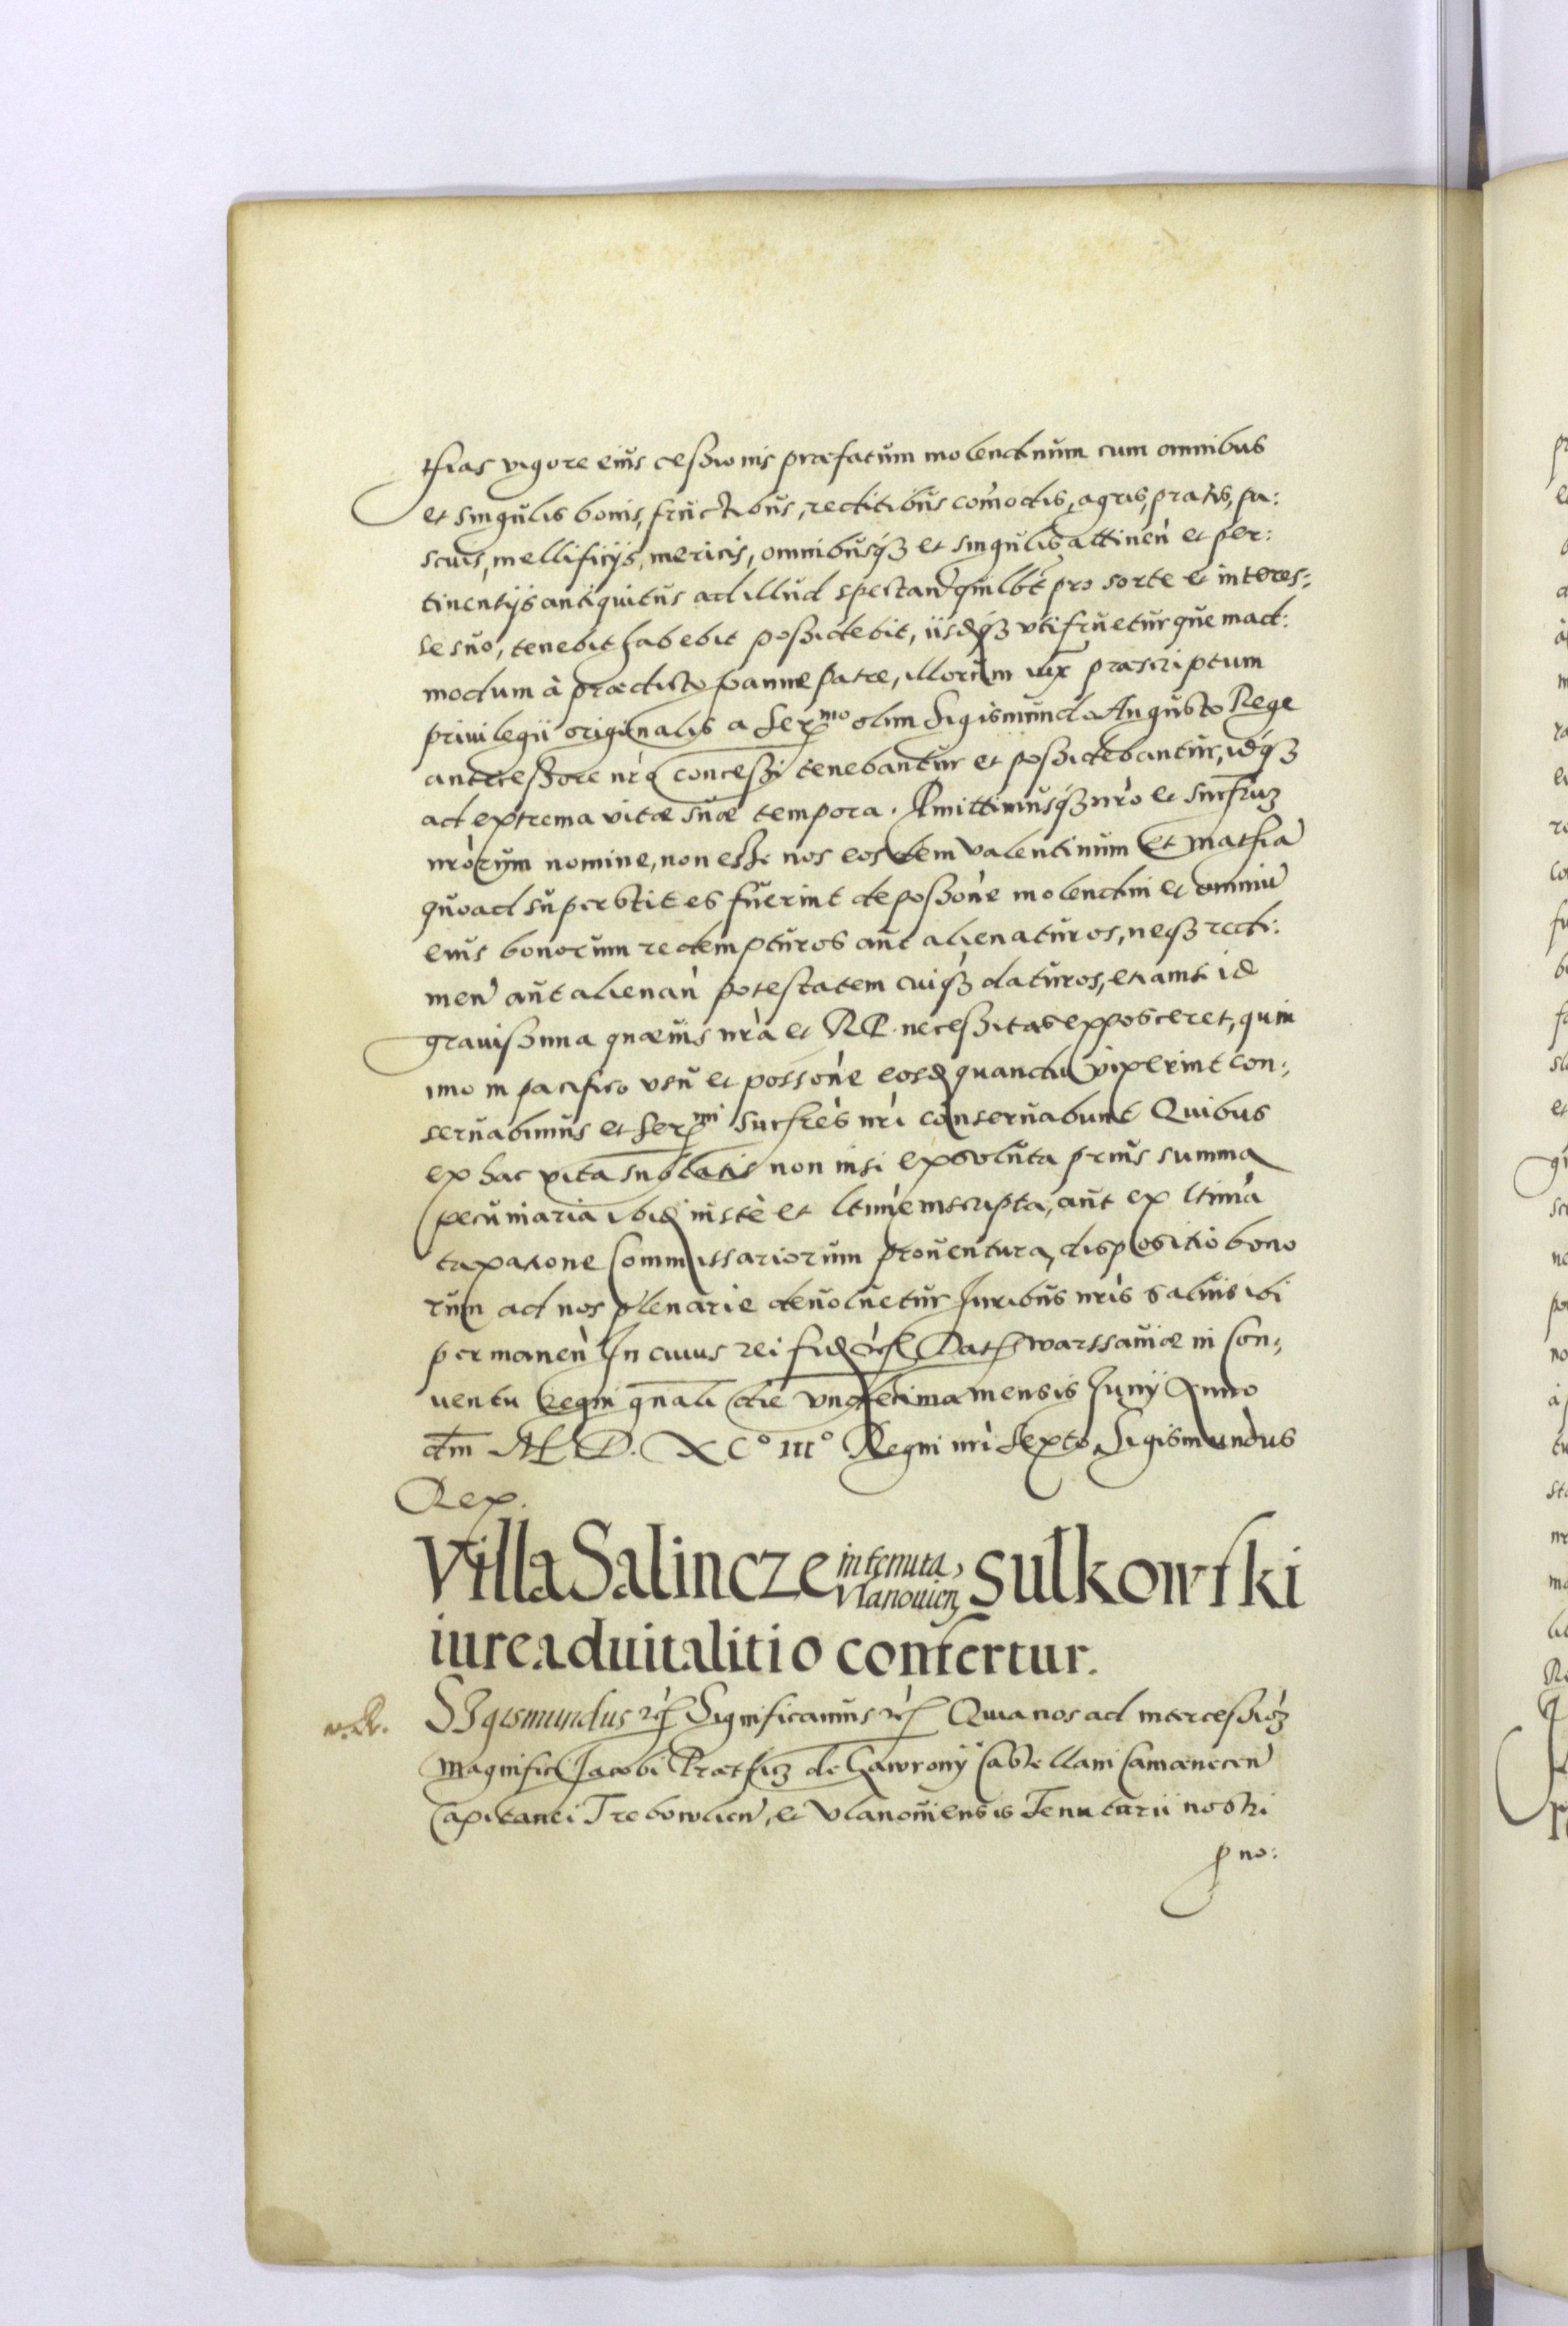 thias vigore eius cessionis præfatum molendinum cum omnibus
et singulis bonis, fructibus, reditibus com̃odis, agris, pratis, pa:
scuis, mellificijs, mericis, omnibusq́ʒ et singulis attineñ et per:
tinentijs antiquitus ad illud spectañ quilbt pro sorte et interes:
se suo, tenebit habebit possidebit, iisdq́ʒ vti fruetur quemad:
modum à prædicto Joanne patre, illorum iux̃ præscriptum
priuilegii originalis a Sermo olim Sigismundo Augusto Rege
antecessore nr̃o concessi tenebantur et possidebantur, idq́ʒ
ad extrema vitæ suæ tempora. Pmittimusq́ʒ nr̃o et Sucr̃uʒ
nr̃orum nomine, non esse nos eosdem Valentinum et Mathiã
quoad superstites fuerint de possoñe molendini et omniũ
eius bonorum redempturos aut alienaturos, neqʒ redi:
meñ aut alienañ potestatem cuiqʒ daturos, etiamsi id
grauissima quæuis nr̃a et RP. necessitas exposceret, quin
imo in pacifico vsu et possoñe eosd quandiu vixerint con:
seruabimus et Sermi Sucr̃es nr̃i conseruabunt Quibus
ex hac vita sublatis non nisi exsoluta prius summa
pecuniaria ibid iuste et ltime inscripta, aut ex ltima
taxatione Commissariorum prouentura, dispositio bono
rum ad nos plenarie deuoluetur Juribus nr̃is saluis ibi
permaneñ In cuius rei fid ec Dat Warssauiæ in Con:
uentu Regni gñali die vndecima mensis Junij Anno
dm̃ M. D. XCo IIIo Regni nr̃i Sexto Sigismundus
Rex.
Villa Salincze in tenuta Vlanouieñ Sulkowski
iure aduitalitio confertur.
Sigismundus ec Significamus ec Quia nos ad intercessioʒ
Magnifici Jacobi Prætfiʒ de Gawrony Castellani Camæneceñ
Capitanei Trebowlieñ, et Vlanouiensis Tenutarii nostri
pno: